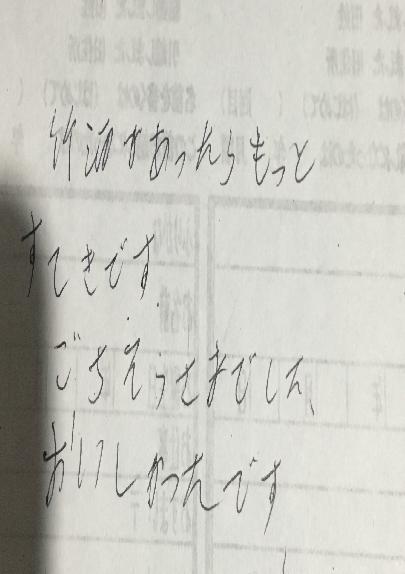 竹酒があったらもっと
すてきです.
ごちそうさまでした、
おいしかったです